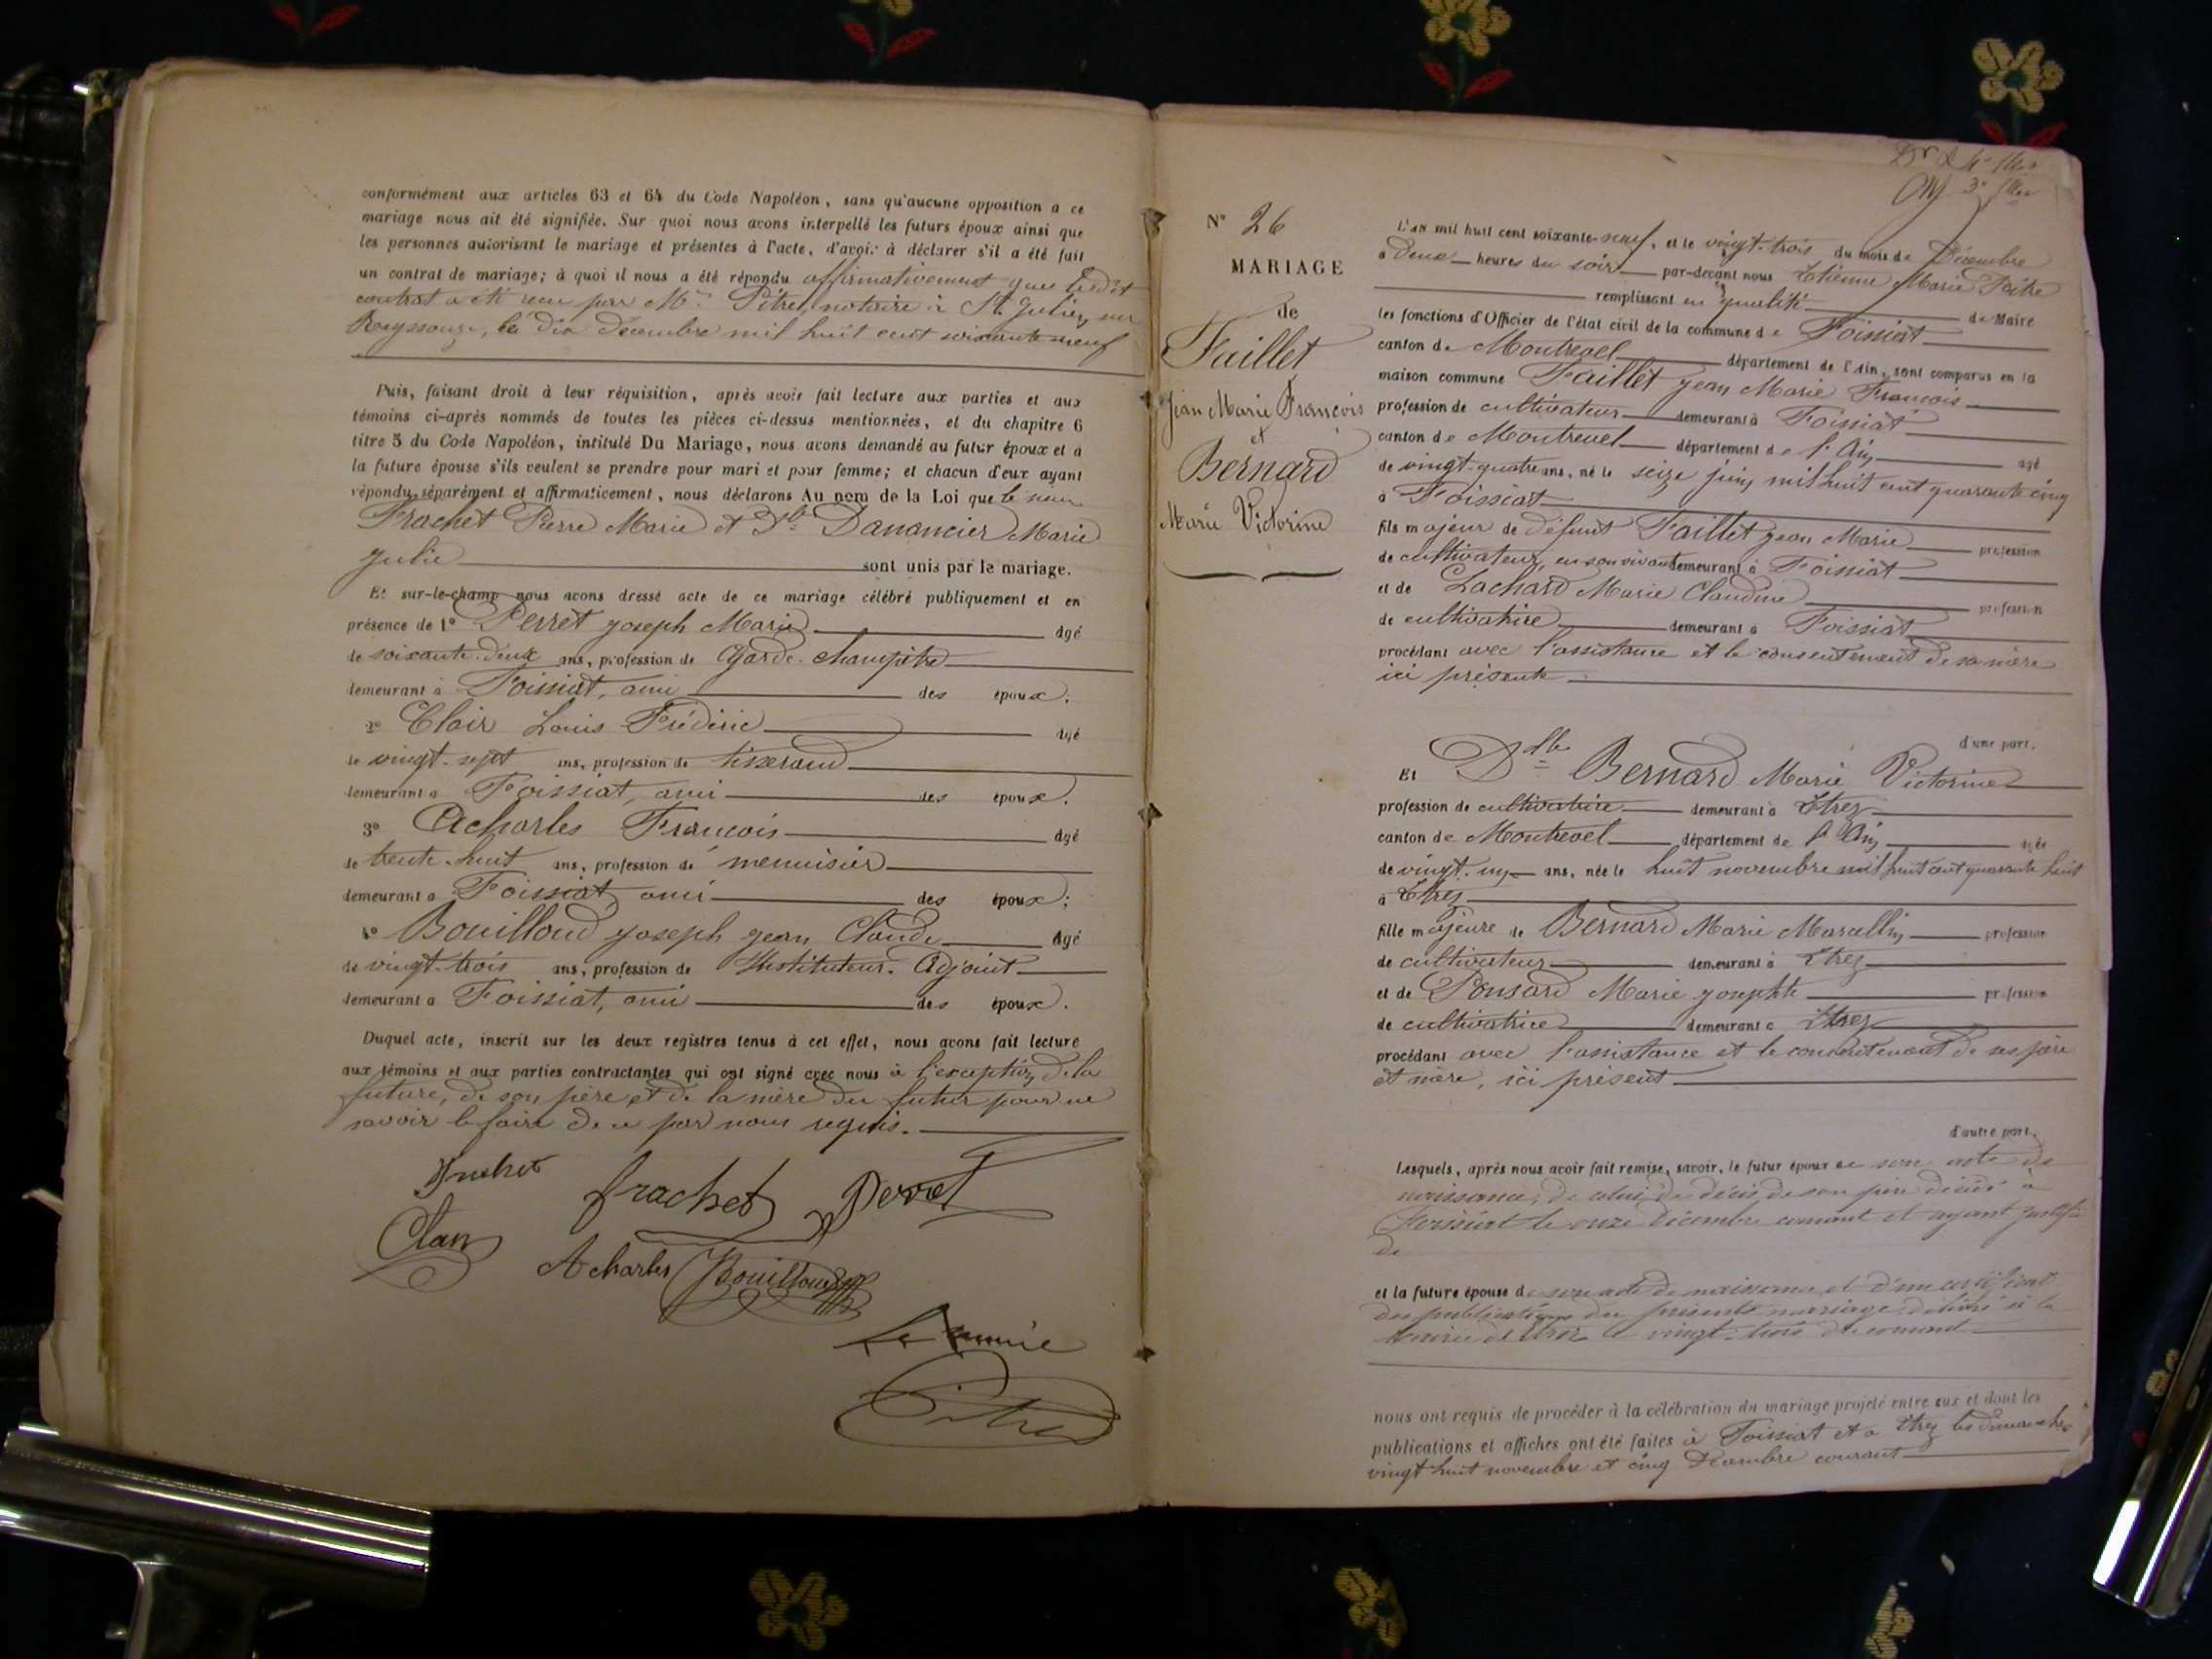 conformément aux articles 63 et 64 du Code Napoléon, sans qu'aucune opposition a ce
mariage nous ait été signifiée. Sur quoi nous avons interpellé les futurs époux ainsi que
les personnes autorisant le mariage et présentes à l'acte, d'avoir à déclarer s'il a été fait
un contrat de mariage; à quoi il nous a été répondu affirmativement que ledit
contrat a été reçu par Me Pitre, notaire à St Julien sur
Reyssouze, le dix Décembre mil huit cent soixante neuf
Puis, faisant droit à leur réquisition, après avoir fait lecture aux parties et aux
témoins ci-après nommés de toutes les pièces ci-dessus mentionnées, et du chapitre 6
titre 5 du Code Napoléon, intitulé Du Mariage, nous avons demandé au futur époux et à
la future épouse s'ils veulent se prendre pour mari et pour femme; et chacun d'eux ayant
répondu séparément et affirmativement, nous déclarons Au nom de la Loi que le sieur
Frachet Pierre Marie et Dlle Danancier Marie
Julie sont unis par le mariage.
Et sur-le-champ nous avons dressé acte de ce mariage célébré publiquement et en
présence de 1° Perret Joseph Marie âgé
de soixante-deux ans, profession de Garde-champêtre
demeurant à Foissiat, ami des époux;
2° Clair Louis Frédéric âgé
de vingt-sept ans, profession de tisserand
demeurant à Foissiat, ami des époux.
3° Acharles François âgé
de trente-huit ans, profession de menuisier
demeurant à Foissiat, ami des époux;
4° Bouilloud Joseph Jean Claude âgé
de vingt-trois ans, profession de Instituteur-Adjoint
demeurant à Foissiat, ami des époux.
Duquel acte, inscrit sur les deux registres tenus à cet effet, nous avons fait lecture
aux témoins et aux parties contractantes qui ont signé avec nous à l'exception de la
future, de son père et de la mère du futur pour ne
savoir le faire de ce par nous requis.
Frachet frachet Perret
Clair Acharles Bouilloud
Le Maire
Pitre
N° 26
MARIAGE
de
Faillet
Jean Marie François
et
Bernard
Marie Victorine
L'an mil huit cent soixante-neuf, et le vingt-trois du mois de Décembre
à Deux heures du soir par-devant nous Etienne Marie Pitre
remplissant en qualité de Maire
les fonctions d'Officier de l'état civil de la commune de Foissiat
canton de Montrevel département de l'Ain, sont comparus en la
maison commune Faillet Jean Marie François
profession de cultivateur demeurant à Foissiat
canton de Montrevel département de l'Ain âgé
de vingt-quatre ans, né le seize juin mil huit cent quarante cinq
à Foissiat
fils majeur de défunt Faillet Jean Marie profession
de cultivateur, en son vivant demeurant à Foissiat
et de Lachard Marie Claudine profession
de cultivatrice demeurant à Foissiat
procédant avec l'assistance et le consentement de sa mère
ici présente
d'une part.
Et Dlle Bernard Marie Victorine
profession de cultivatrice demeurant à Etrez
canton de Montrevel département de l'Ain âgée
de vingt-un ans, née le huit novembre mil huit cent quarante huit
à Etrez
fille majeure de Bernard Marie Marcellin profession
de cultivateur demeurant à Etrez
et de Ponsard Marie Josephte profession
de cultivatrice demeurant à Etrez
procédant avec l'assistance et le consentement de ses père
et mère, ici présent
d'autre part.
Lesquels, après nous avoir fait remise, savoir, le futur époux de son acte de
naissance, de celui de décès de son père décédé à
Foissiat le onze Décembre courant et ayant justifié
de
et la future épouse de son acte de naissance et d'un certificat
des publications du présent mariage, délivré à la
Mairie d'Etrez le vingt-trois du courant
nous ont requis de procéder à la célébration du mariage projeté entre eux et dont les
publications et affiches ont été faites à Foissiat et à Etrez les dimanches
vingt huit novembre et cinq Décembre courant